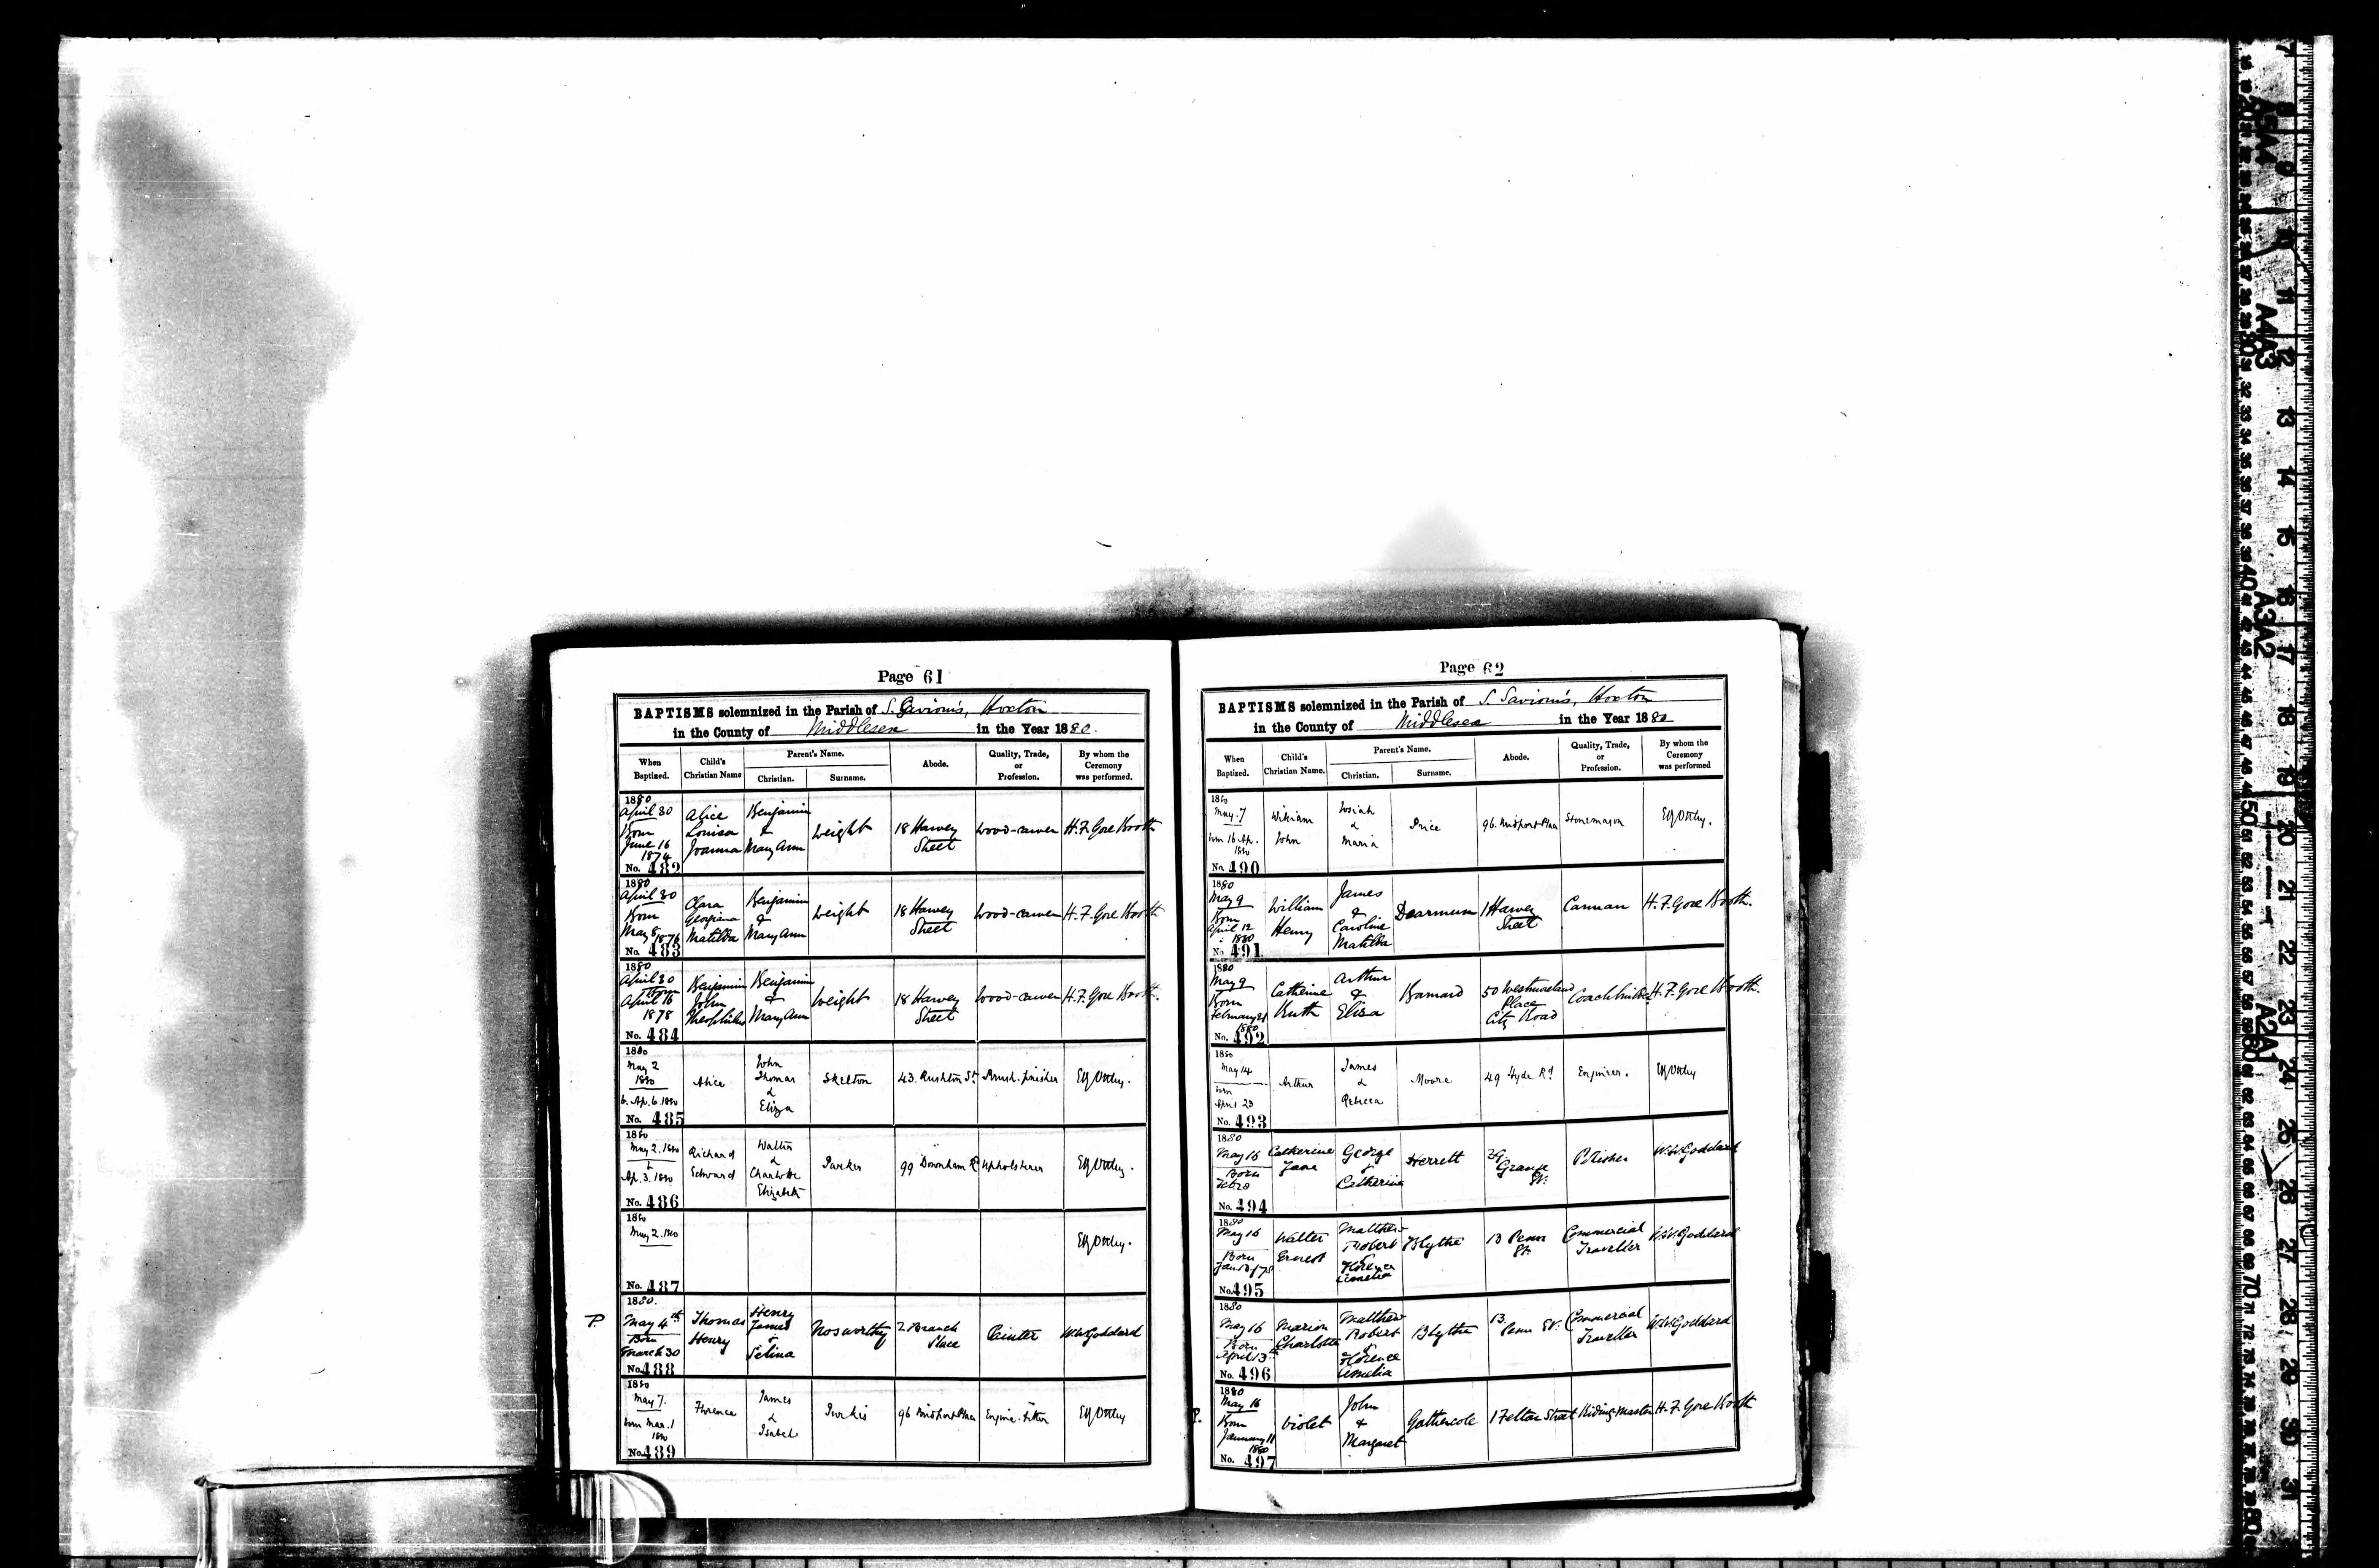 Page 61
BAPTISMS solemnized in the Parish of S. Saviour's, Hoxton
in the County of Middlesex in the Year 1880.
When Baptized. Child's Christian Name Parent's Name. Christian. Surname. Abode. Quality, Trade, or Profession. By whom the Ceremony was performed.
1880
April 30
Born
June 16
1874
No. 482
Alice
Louisa
Joanna
Benjamin
&
Mary Ann
Weight
18 Harvey
Street
Wood-carver
H.F. Gore Booth
1880
April 30
Born
May 8 1876
No. 483
Clara
Georgiana
Matilda
Benjamin
&
Mary Ann
Weight
18 Harvey
Street
Wood-carver
H.F. Gore Booth
1880
April 30
Born
April 16
1878
No. 484
Benjamin
John
Theophilus
Benjamin
&
Mary Ann
Weight
18 Harvey
Street
Wood-carver
H.F. Gore Booth.
1880
May 2
1880
b. Ap. 6. 1880
No. 485
Alice
John
Thomas
&
Eliza
Skelton
43. Rushton St
Brush-finisher
1880
May 2. 1880
b
Ap. 3. 1880
No. 486
Richard
Edward
Walter
&
Charlotte
Elizabeth
Parker
99 Downham Rd
Upholsterer
1880
May 2. 1880
No. 487
P.
1880.
May 4th
Born
March 30
No. 488
Thomas
Henry
Henry
James
&
Selina
Nosworthy
2 Branch
Place
Painter
W.W. Goddard
1880
May 7.
born Mar. 1
1880
No. 489
Florence
James
&
Isabel
96 Midport Place
Engine-fitter
Page 62
BAPTISMS solemnized in the Parish of S. Saviour's, Hoxton
in the County of Middlesex in the Year 1880
When Baptized. Child's Christian Name. Parent's Name. Christian. Surname. Abode. Quality, Trade, or Profession. By whom the Ceremony was performed
1880
May. 7
born 16. Ap.
1880
No. 490
William
John
Josiah
&
Maria
Price
96. Midport Place
Stonemason
1880
May 9
Born
April 12
1880
No. 491
William
Henry
James
&
Caroline
Matilda
Dearmun
1 Harvey
Street
Carman
H.F. Gore Booth.
1880
May 9
Born
February 21
1880
No. 492
Catherine
Ruth
Arthur
&
Eliza
Barnard
50 Westmoreland
Place
City Road
Coachbuilder
H.F. Gore Booth.
1880
May 14
born
April 23
No. 493
Arthur
James
&
Rebecca
Moore
49 Hyde Rd
Engineer.
1880
May 16
Born
No. 494
Catherine
Jane
George
&
Catherine
Herrett
29
Grange
St.
Polisher
W.W. Goddard
1880
May 16
Born
No. 495
Walter
Ernest
Matthew
Robert
&
Florence
Amelia
Blythe
13 Penn
St.
Commercial
Traveller
W.W. Goddard
1880
May 16
Born
April 13th
No. 496
Marion
Charlotte
Matthew
Robert
&
Florence
Amelia
Blythe
13.
Penn St.
Commercial
Traveller
W.W. Goddard
P.
1880
May 16
Born
January 11
1880
No. 497
Violet
John
&
Margaret
Gathercole
1 Felton Street
Riding-Master
H.F. Gore Booth